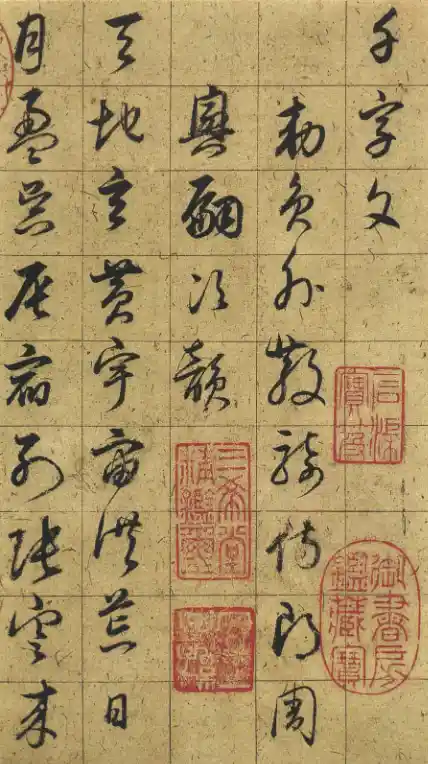 千字文
勅員外散騎侍郎周
興嗣次韻
天地玄黄宇宙洪荒日
月盈昃辰宿列張寒来
石渠寶笈
御書房鑑藏寶
三希堂精鑑璽